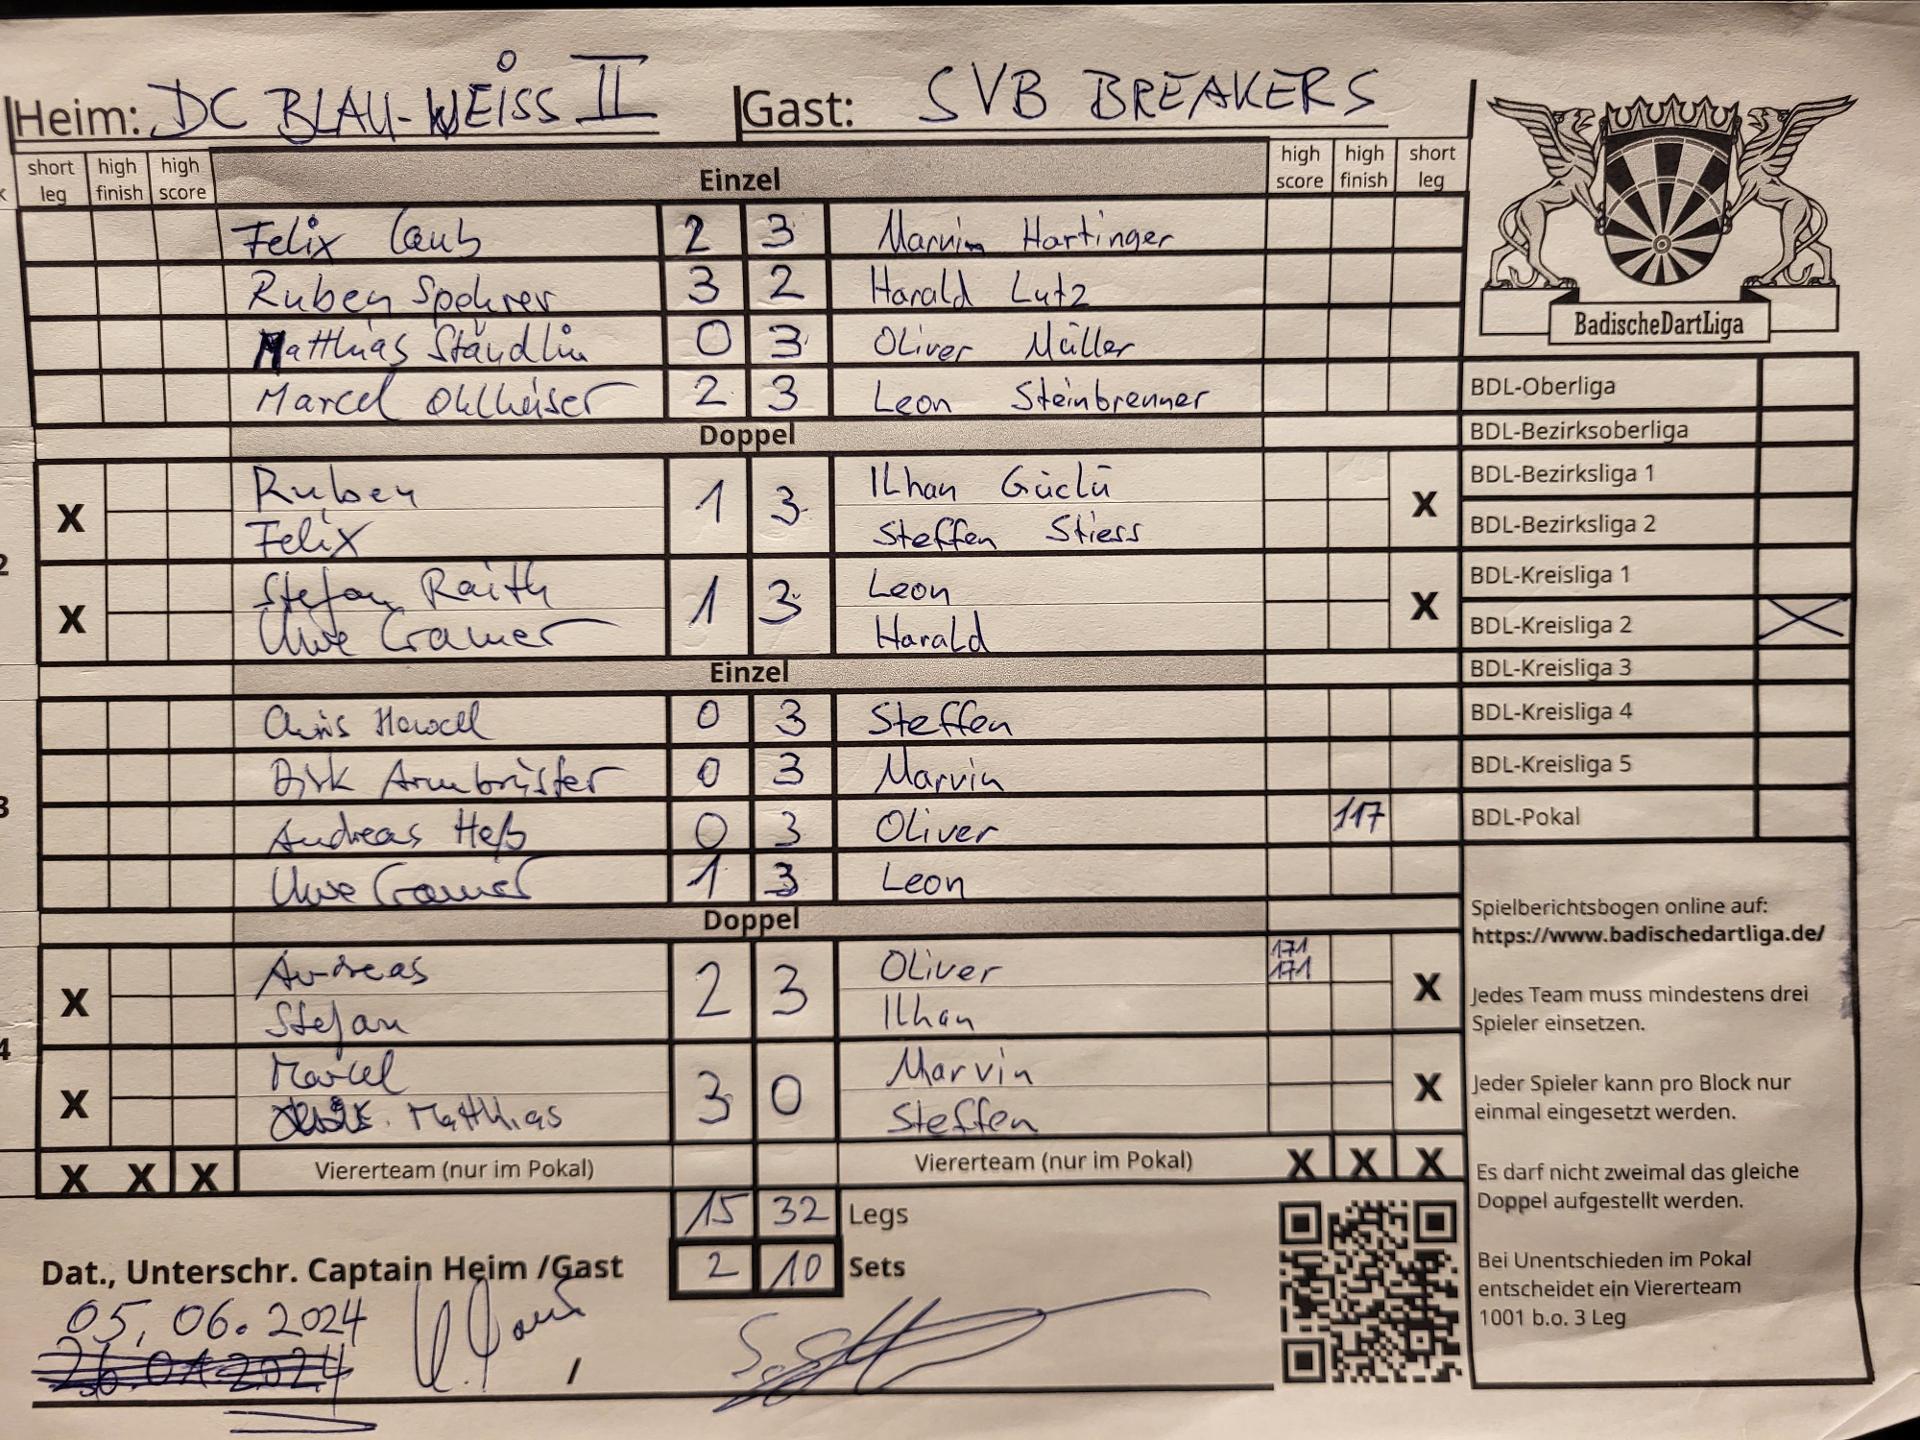 Heim: DC BLAU-WEISS II Gast: SVB BREAKERS
short leg high finish high score Einzel high score high finish short leg
Felix Laub 2 3 Marvin Hartinger
Ruben Spohrer 3 2 Harald Lutz
Matthias Ständlin 0 3 Oliver Müller
Marcel Ohlheiser 2 3 Leon Steinbrenner
Doppel
X Ruben 1 3 Ilhan Güclü X
Felix Steffen Stiess
2
X Stefan Raith 1 3 Leon X
Uwe Cramer Harald
Einzel
Chris 0 3 Steffen
Dirk Armbrüster 0 3 Marvin
3
Andreas Heß 0 3 Oliver 117
Uwe Cramer 1 3 Leon
Doppel
X Andreas 2 3 Oliver 171 171 X
Stefan Ilhan
4
X Marcel 3 0 Marvin X
Matthias Steffen
X X X Viererteam (nur im Pokal) Viererteam (nur im Pokal) X X X
15 32 Legs
2 10 Sets
Dat., Unterschr. Captain Heim /Gast
05.06.2024
26.01.2024 /
BadischeDartLiga
BDL-Oberliga
BDL-Bezirksoberliga
BDL-Bezirksliga 1
BDL-Bezirksliga 2
BDL-Kreisliga 1
BDL-Kreisliga 2 X
BDL-Kreisliga 3
BDL-Kreisliga 4
BDL-Kreisliga 5
BDL-Pokal
Spielberichtsbogen online auf:
https://www.badischedartliga.de/
Jedes Team muss mindestens drei
Spieler einsetzen.
Jeder Spieler kann pro Block nur
einmal eingesetzt werden.
Es darf nicht zweimal das gleiche
Doppel aufgestellt werden.
Bei Unentschieden im Pokal
entscheidet ein Viererteam
1001 b.o. 3 Leg